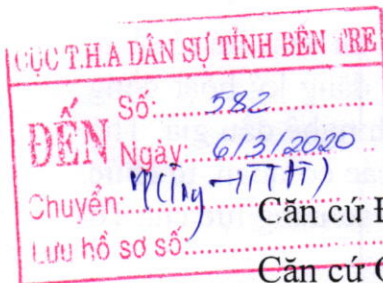 CỤC T.H.A DÂN SỰ TỈNH BẾN TRE
ĐẾN
Số: 582
Ngày: 6/3/2020
Chuyển:
Lưu hồ sơ số:
Căn cứ
Căn cứ